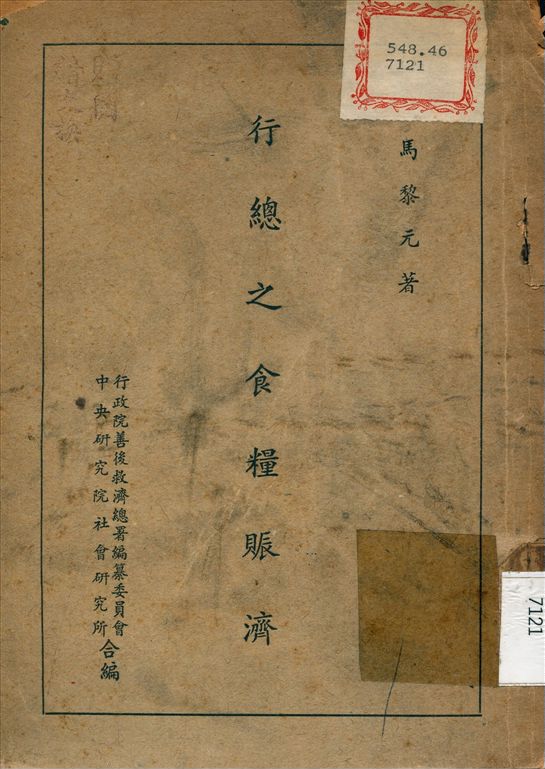 548.46
7121
馬黎元著
行總之食糧賑濟
行政院善後救濟總署編纂委員會
中央研究院社會研究所
合編
7121